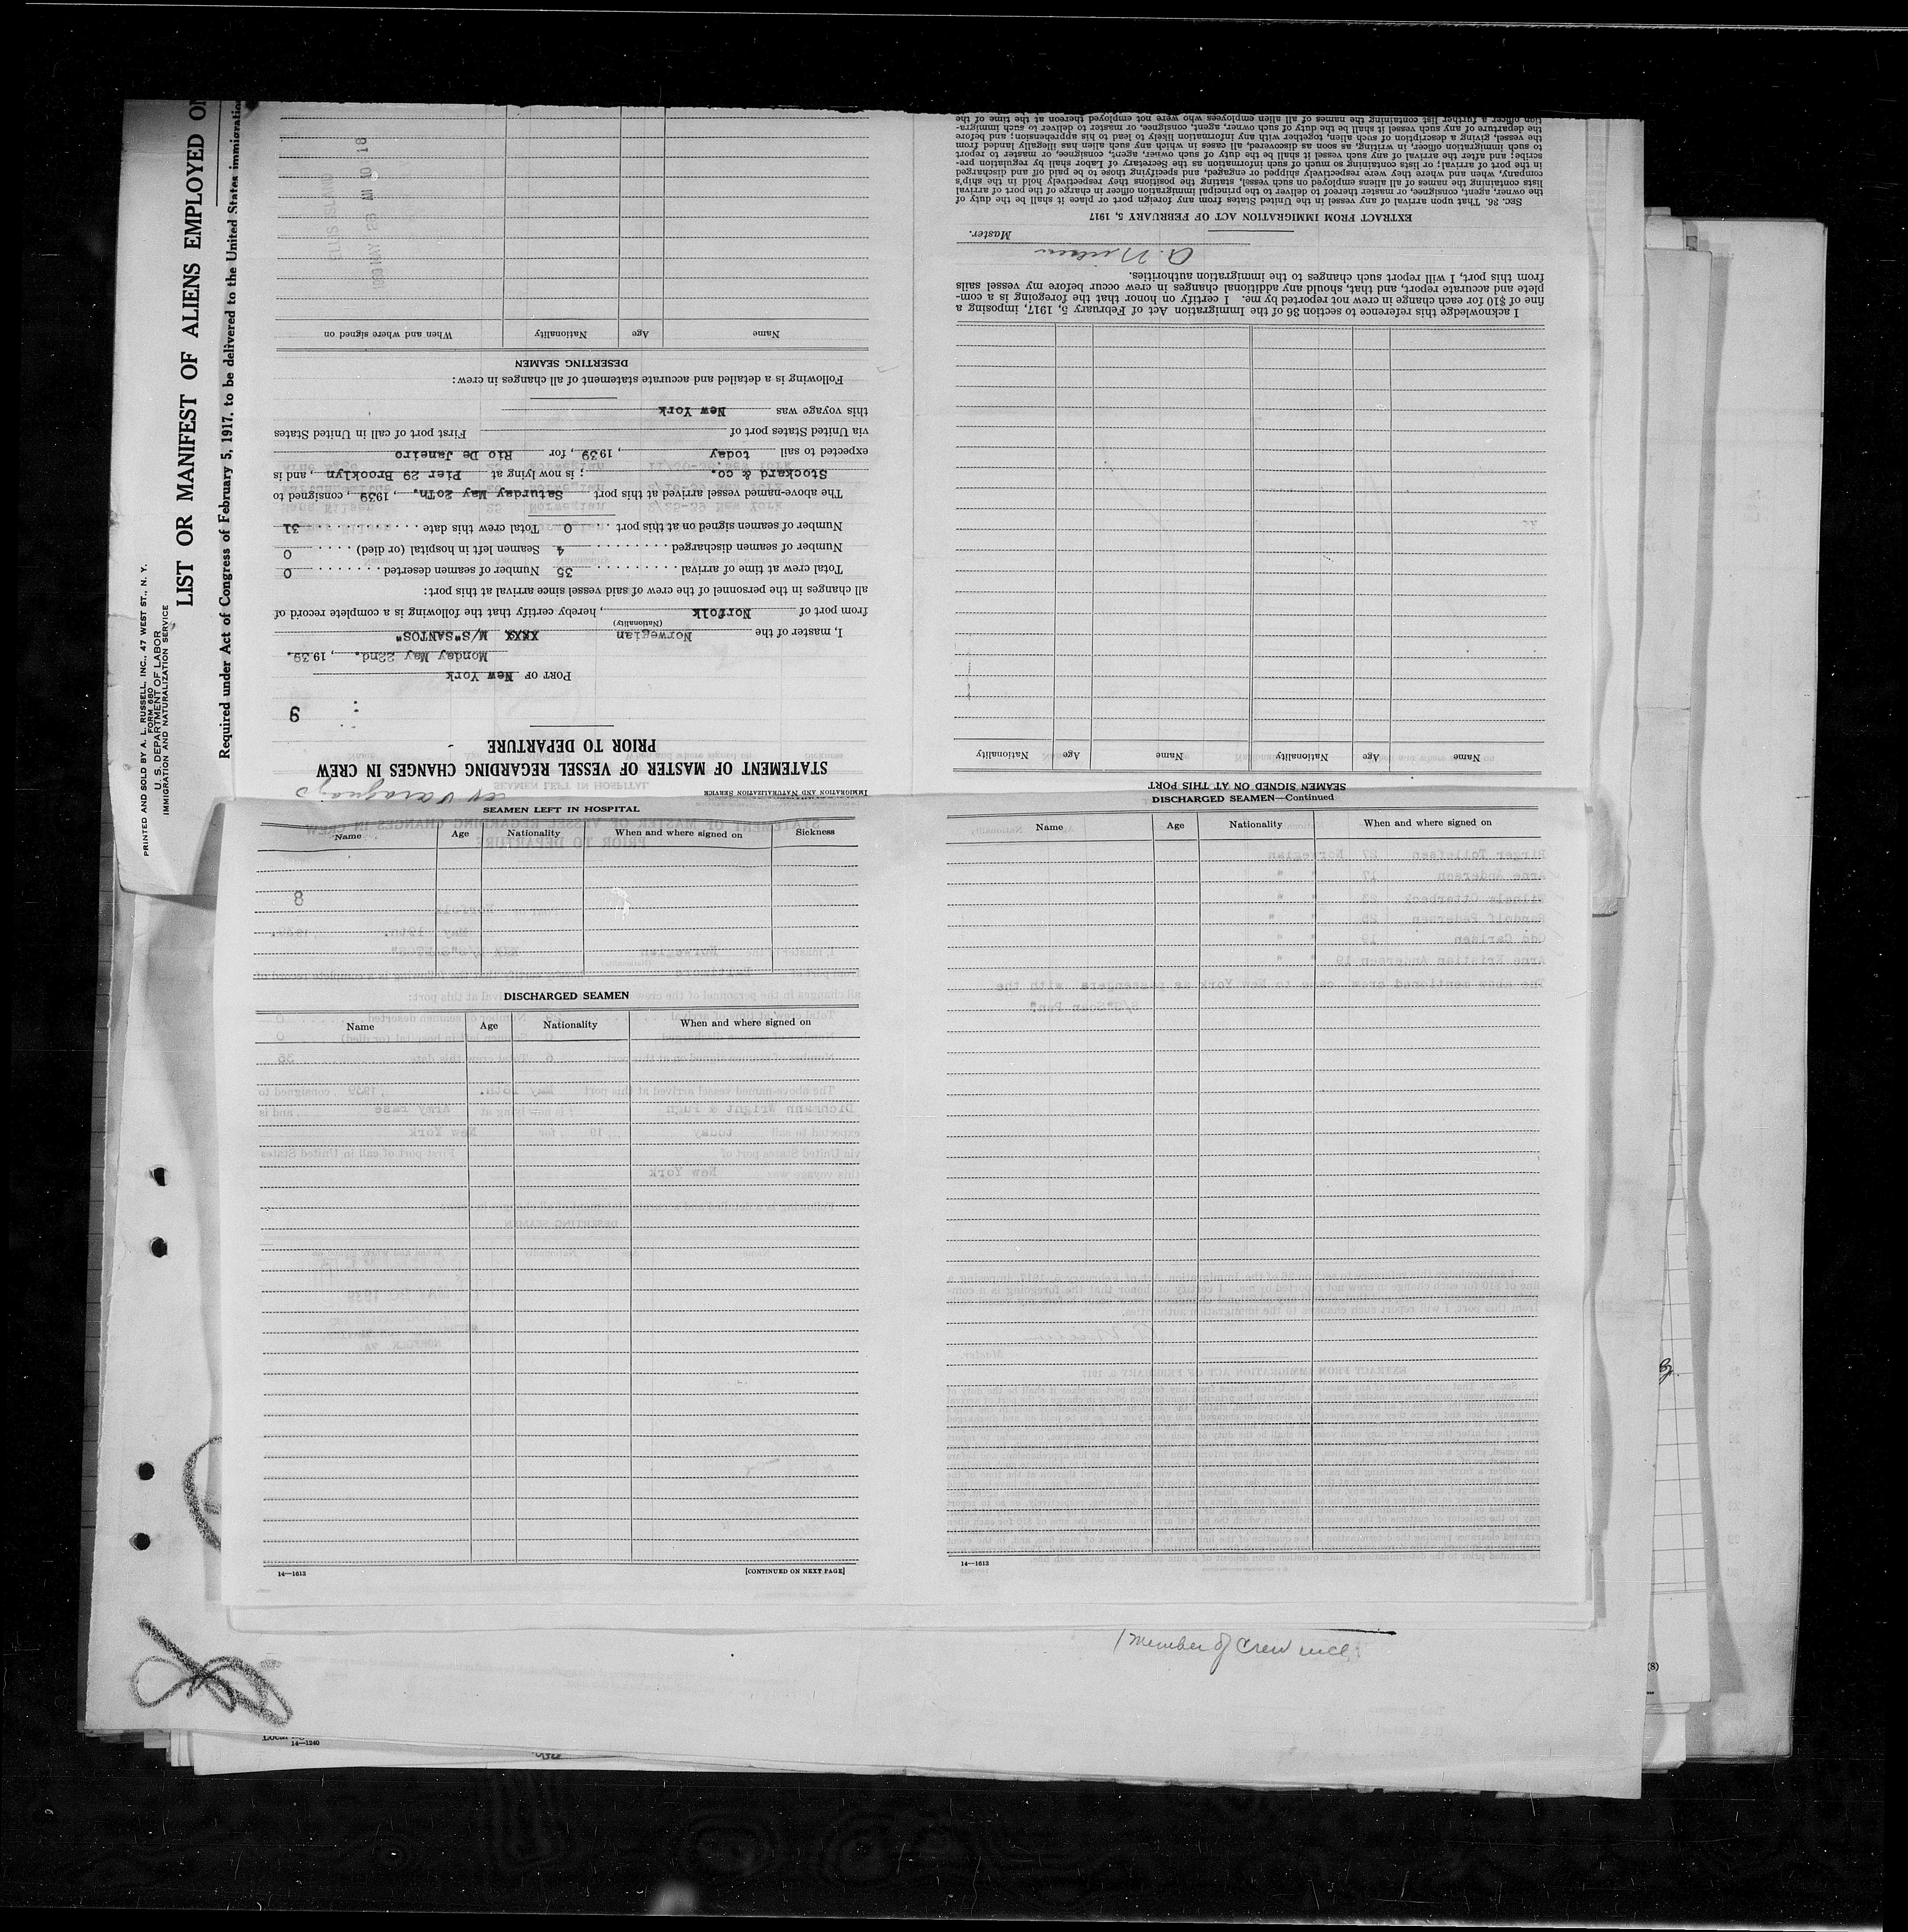 PRINTED AND SOLD BY A. L. RUSSELL, INC., 47 WEST ST., N. Y.
FORM 680
U. S. DEPARTMENT OF LABOR
IMMIGRATION AND NATURALIZATION SERVICE
LIST OR MANIFEST OF ALIENS EMPLOYED ON
Required under Act of Congress of February 5, 1917, to be delivered to the United States immigration
IMMIGRATION AND NATURALIZATION SERVICE
STATEMENT OF MASTER OF VESSEL REGARDING CHANGES IN CREW
PRIOR TO DEPARTURE
9
PORT OF New York
Monday May 22nd. , 1939.
I, master of the Norwegian XXXX M/S"SANTOS"
(Nationality)
from port of Norfolk , hereby certify that the following is a complete record of
all changes in the personnel of the crew of said vessel since arrival at this port:
Total crew at time of arrival 35 Number of seamen deserted 0
Number of seamen discharged 4 Seamen left in hospital (or died) 0
Number of seamen signed on at this port 0 Total crew this date 31
The above-named vessel arrived at this port Saturday May 20Th. , 1939 , consigned to
Stockard & co. ; is now lying at Pier 29 Brooklyn , and is
expected to sail today , 1939 , for Rio De Janeiro
via United States port of First port of call in United States
this voyage was New York
Following is a detailed and accurate statement of all changes in crew:
DESERTING SEAMEN
Name Age Nationality When and where signed on
ELLIS ISLAND
1939 MAY 23 AM 10 18
SEAMEN SIGNED ON AT THIS PORT
Name Age Nationality Name Age Nationality
I acknowledge this reference to section 36 of the Immigration Act of February 5, 1917, imposing a
fine of $10 for each change in crew not reported by me. I certify on honor that the foregoing is a com-
plete and accurate report, and that, should any additional changes in crew occur before my vessel sails
from this port, I will report such changes to the immigration authorities.
Master.
EXTRACT FROM IMMIGRATION ACT OF FEBRUARY 5, 1917
SEC. 36. That upon arrival of any vessel in the United States from any foreign port or place it shall be the duty of
the owner, agent, consignee, or master thereof to deliver to the principal immigration officer in charge of the port of arrival
lists containing the names of all aliens employed on such vessel, stating the positions they respectively hold in the ship's
company, when and where they were respectively shipped or engaged, and specifying those to be paid off and discharged
in the port of arrival; or lists containing so much of such information as the Secretary of Labor shall by regulation pre-
scribe; and after the arrival of any such vessel it shall be the duty of such owner, agent, consignee, or master to report
to such immigration officer, in writing, as soon as discovered, all cases in which any such alien has illegally landed from
the vessel, giving a description of such alien, together with any information likely to lead to his apprehension; and before
the departure of any such vessel it shall be the duty of such owner, agent, consignee, or master to deliver to such immigra-
tion officer a further list containing the names of all alien employees who were not employed thereon at the time of the
SEAMEN LEFT IN HOSPITAL
Name Age Nationality When and where signed on Sickness
DISCHARGED SEAMEN
Name Age Nationality When and where signed on
14—1613 [CONTINUED ON NEXT PAGE]
DISCHARGED SEAMEN—Continued
Name Age Nationality When and where signed on
14—1613
1 member of Crew
(8)
14—1240